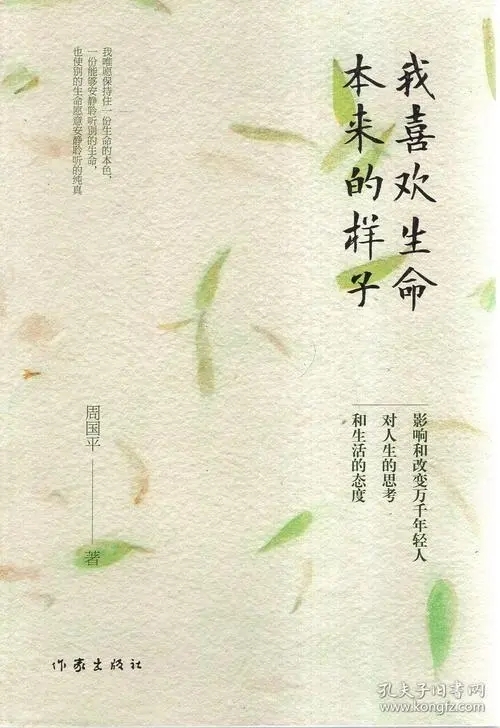 我喜欢生命
本来的样子
影响和改变万千年轻人
对人生的思考
和生活的态度
我唯愿保持住一份生命的本色，
一份能够安静聆听别的生命，
也使别的生命愿意安静聆听的纯真
周国平
著
作家出版社
孔夫子旧书网
www.kongfz.com